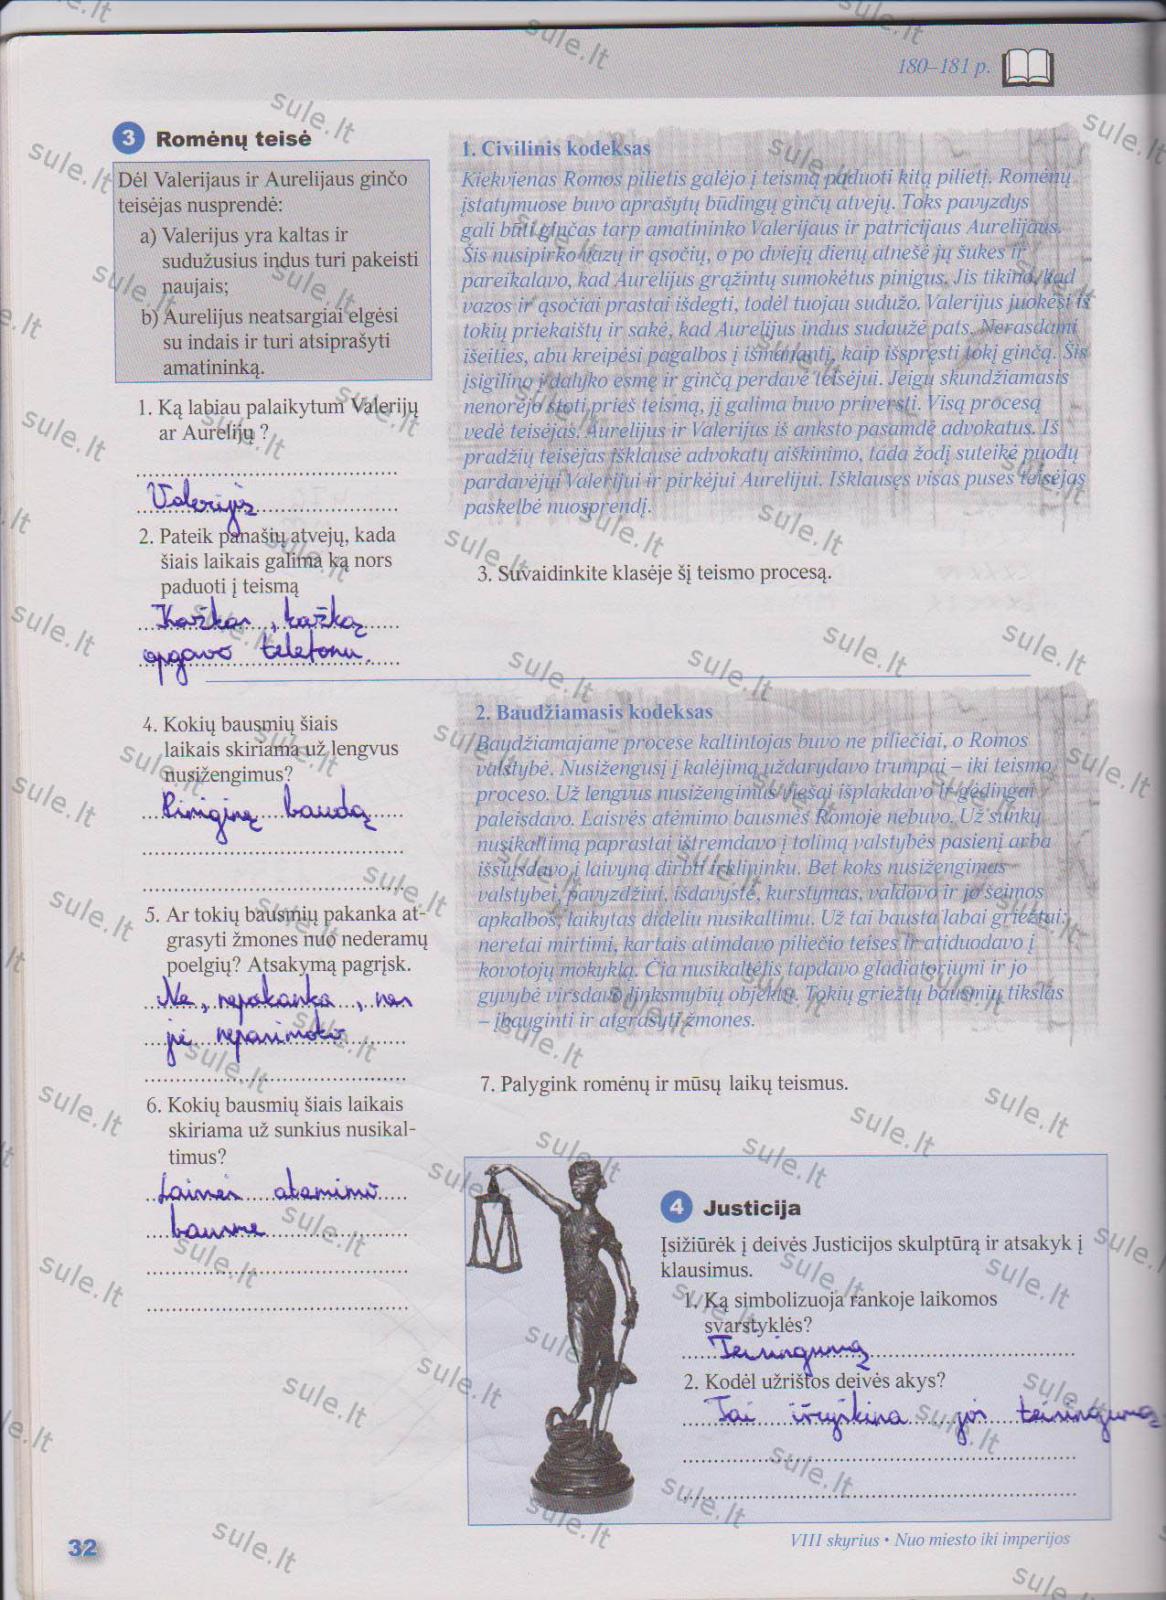 180–181 p.
3 Romėnų teisė
Dėl Valerijaus ir Aurelijaus ginčo
teisėjas nusprendė:
a) Valerijus yra kaltas ir
sudužusius indus turi pakeisti
naujais;
b) Aurelijus neatsargiai elgėsi
su indais ir turi atsiprašyti
amatininką.
1. Ką labiau palaikytum Valerijų
ar Aurelijų ?
Valerijų
2. Pateik panašių atvejų, kada
šiais laikais galima ką nors
paduoti į teismą
Kažkas, kažką
apgavo telefonu.
1. Civilinis kodeksas
Kiekvienas Romos pilietis galėjo į teismą paduoti kitą pilietį. Romėnų
įstatymuose buvo aprašytų būdingų ginčų atvejų. Toks pavyzdys
gali būti ginčas tarp amatininko Valerijaus ir patricijaus Aurelijaus.
Šis nusipirko vazų ir ąsočių, o po dviejų dienų atnešė jų šukes ir
pareikalavo, kad Aurelijus grąžintų sumokėtus pinigus. Jis tikino, kad
vazos ir ąsočiai prastai išdegti, todėl tuojau sudužo. Valerijus juokėsi iš
tokių priekaištų ir sakė, kad Aurelijus indus sudaužė pats. Nerasdami
išeities, abu kreipėsi pagalbos į išmanantį, kaip išspręsti tokį ginčą. Šis
įsigilino į dalyko esmę ir ginčą perdavė teisėjui. Jeigu skundžiamasis
nenorėjo stoti prieš teismą, jį galima buvo priversti. Visą procesą
vedė teisėjas. Aurelijus ir Valerijus iš anksto pasamdė advokatus. Iš
pradžių teisėjas išklausė advokatų aiškinimo, tada žodį suteikė puodų
pardavėjui Valerijui ir pirkėjui Aurelijui. Išklausęs visas puses teisėjas
paskelbė nuosprendį.
3. Suvaidinkite klasėje šį teismo procesą.
4. Kokių bausmių šiais
laikais skiriama už lengvus
nusižengimus?
Piniginę baudą
5. Ar tokių bausmių pakanka at-
grasyti žmones nuo nederamų
poelgių? Atsakymą pagrįsk.
Ne, nepakanka, nes
jie nepasimoko
6. Kokių bausmių šiais laikais
skiriama už sunkius nusikal-
timus?
Laisvės atėmimo
bausmė
2. Baudžiamasis kodeksas
Baudžiamajame procese kaltintojas buvo ne piliečiai, o Romos
valstybė. Nusižengusį į kalėjimą uždarydavo trumpai – iki teismo
proceso. Už lengvus nusižengimus viešai išplakdavo ir gėdingai
paleisdavo. Laisvės atėmimo bausmės Romoje nebuvo. Už sunkų
nusikaltimą paprastai ištremdavo į tolimą valstybės pasienį arba
išsiųsdavo į laivyną dirbti irklininku. Bet koks nusižengimas
valstybei, pavyzdžiui, išdavystė, kurstymas, valdovo ir jo šeimos
apkalbos, laikytas dideliu nusikaltimu. Už tai bausta labai griežtai:
neretai mirtimi, kartais atimdavo piliečio teises ir atiduodavo į
kovotojų mokyklą. Čia nusikaltėlis tapdavo gladiatoriumi ir jo
gyvybė virsdavo linksmybių objektu. Tokių griežtų bausmių tikslas
– įbauginti ir atgrasyti žmones.
7. Palygink romėnų ir mūsų laikų teismus.
4 Justicija
Įsižiūrėk į deivės Justicijos skulptūrą ir atsakyk į
klausimus.
1. Ką simbolizuoja rankoje laikomos
svarstyklės?
Teisingumą
2. Kodėl užrištos deivės akys?
Tai išryškina jos teisingumą
32
VIII skyrius • Nuo miesto iki imperijos
sule.lt